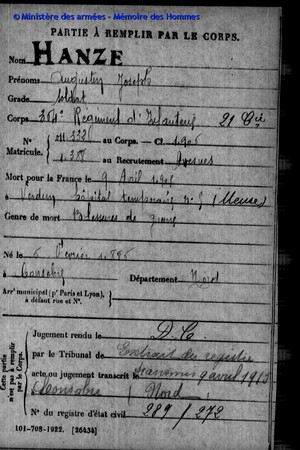 © Ministère des armées - Mémoire des Hommes
PARTIE À REMPLIR PAR LE CORPS.
Nom HANZE
Prénoms Augustin Joseph
Grade Soldat
Corps Régiment d'Infanterie 21 Cie
N° au Corps. - Cl.
Matricule. au Recrutement Avesnes
Mort pour la France le 9 Avril
à Verdun hôpital temporaire (Meuse)
Genre de mort Blessures de guerre
Né le Février
à Département Nord
Arr' municipal (p' Paris et Lyon),
à défaut rue et N°.
Cette partie n'est pas à remplir par le Corps.
Jugement rendu le D. C.
par le Tribunal de Extrait du registre
acte ou jugement transcrit le 9 avril
(Nord)
N° du registre d'état civil 289 / 272
101-708-1922. [26434]